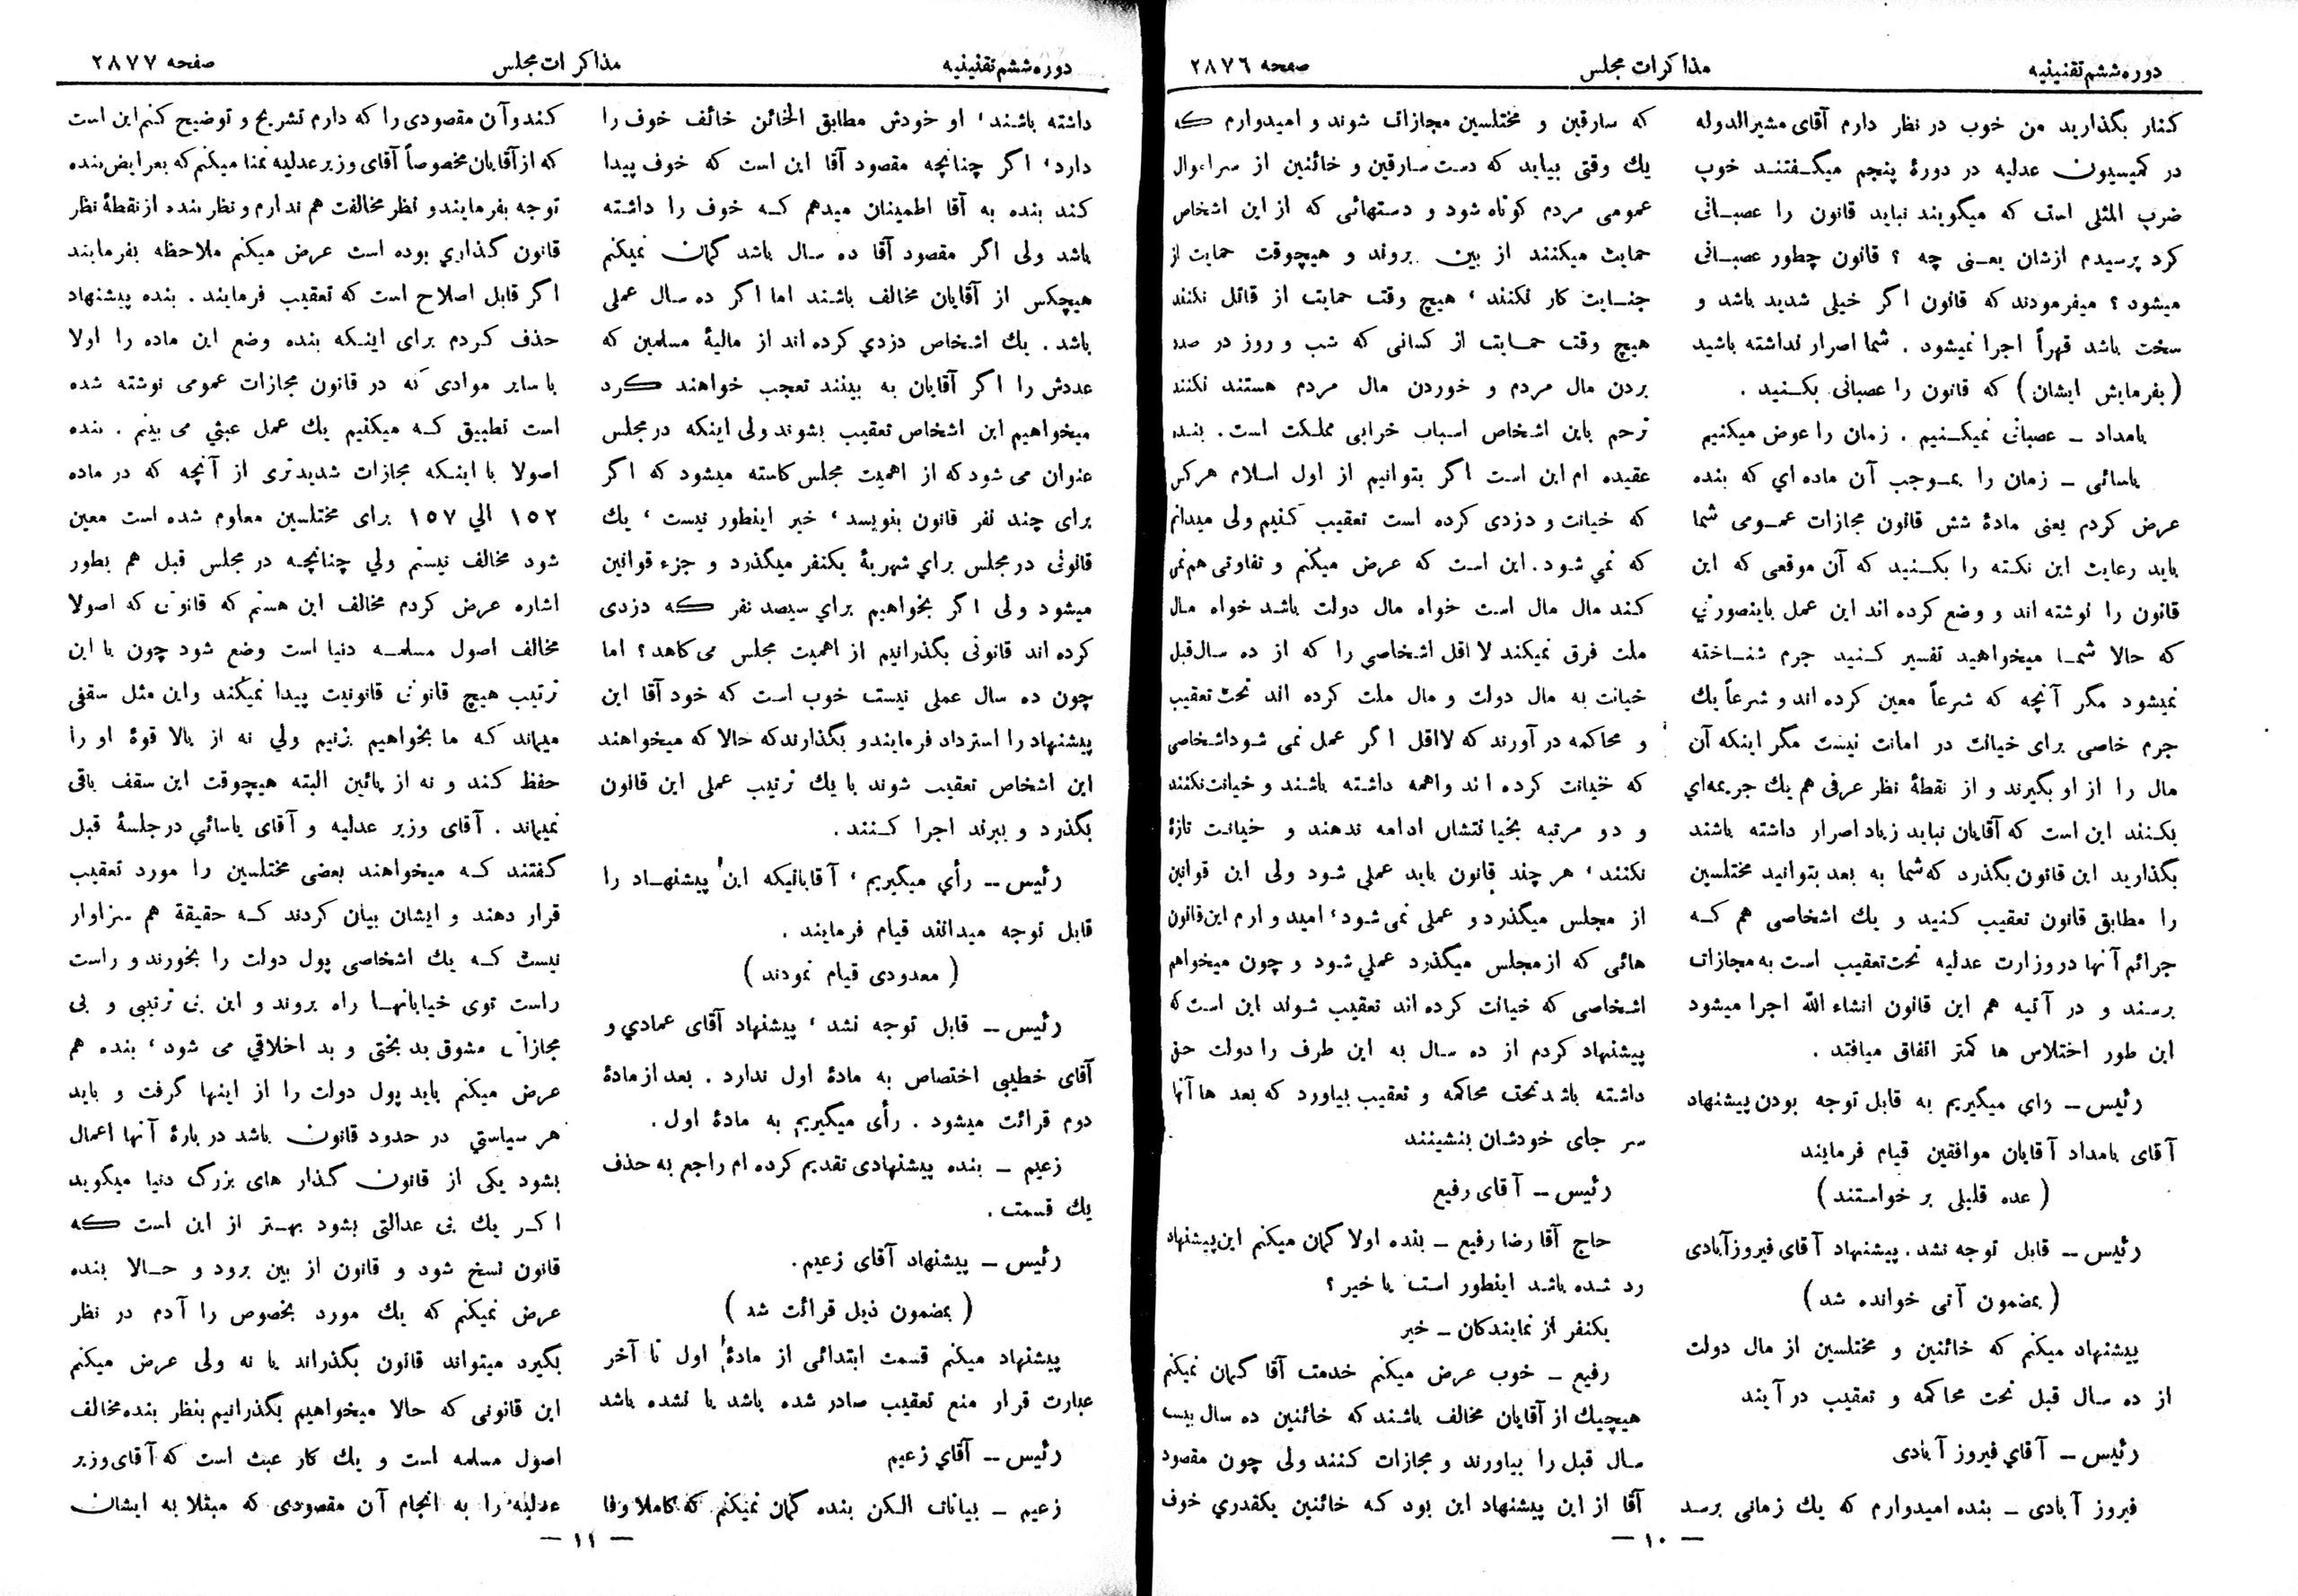 دوره ششم تقنینیه
مذاکرات مجلس
صفحه ۲۸۷۶
کنار بگذارید من خوب در نظر دارم آقای مشیرالدوله
در کمیسیون عدلیه در دورهٔ پنجم میگفتند خوب
ضرب المثلی است که میگویند نباید قانون را عصبانی
کرد پرسیدم ازشان یعنی چه ؟ قانون چطور عصبانی
میشود ؟ میفرمودند که قانون اگر خیلی شدید باشد و
سخت باشد قهراً اجرا نمیشود . شما اصرار نداشته باشید
(بفرمایش ایشان) که قانون را عصبانی بکنید .
بامداد ـ عصبانی نمیکنیم . زمان را عوض میکنیم
یاسائی ـ زمان را بموجب آن ماده ای که بنده
عرض کردم یعنی مادهٔ شش قانون مجازات عمومی شما
باید رعایت این نکته را بکنید که آن موقعی که این
قانون را نوشته اند و وضع کرده اند این عمل باینصورتی
که حالا شما میخواهید تفسیر کنید جرم شناخته
نمیشود مگر آنچه که شرعاً معین کرده اند و شرعاً یك
جرم خاصی برای خیانت در امانت نیست مگر اینکه آن
مال را از او بگیرند و از نقطهٔ نظر عرفی هم یك جریمه‌ای
بکنند این است که آقایان نباید زیاد اصرار داشته باشند
بگذارید این قانون بگذرد که شما به بعد بتوانید مختلسین
را مطابق قانون تعقیب کنید و یك اشخاصی هم که
جرائم آنها در وزارت عدلیه تحت تعقیب است به مجازات
برسند و در آتیه هم این قانون انشاء الله اجرا میشود
این طور اختلاس ها کمتر اتفاق میافتد .
رئیس ـ رای میگیریم به قابل توجه بودن پیشنهاد
آقای بامداد آقایان موافقین قیام فرمایند
( عده قلیلی بر خواستند )
رئیس ـ قابل توجه نشد . پیشنهاد آقای فیروزآبادی
( بمضمون آتی خوانده شد )
پیشنهاد میکنم که خائنین و مختلسین از مال دولت
از ده سال قبل تحت محاکمه و تعقیب در آیند
رئیس ـ آقای فیروز آبادی
فیروز آبادی ـ بنده امیدوارم که یك زمانی برسد
که سارقین و مختلسین مجازات شوند و امیدوارم که
یك وقتی بیاید که دست سارقین و خائنین از سر اموال
عمومی مردم کوتاه شود و دستهائی که از این اشخاص
حمایت میکنند از بین بروند و هیچوقت حمایت از
جنایت کار نکنند ، هیچ وقت حمایت از قاتل نکنند
هیچ وقت حمایت از کسانی که شب و روز در صدد
بردن مال مردم و خوردن مال مردم هستند نکنند
ترحم باین اشخاص اسباب خرابی مملکت است . بنده
عقیده ام این است اگر بتوانیم از اول اسلام هرکس
که خیانت و دزدی کرده است تعقیب کنیم ولی میدانم
که نمی شود . این است که عرض میکنم و تفاوتی هم نمی
کند مال مال است خواه مال دولت باشد خواه مال
ملت فرق نمیکند لا اقل اشخاصی را که از ده سال قبل
خیانت به مال دولت و مال ملت کرده اند تحت تعقیب
و محاکمه در آورند که لااقل اگر عمل نمی شود اشخاصی
که خیانت کرده اند واهمه داشته باشند و خیانت نکنند
و دو مرتبه بخیانتشان ادامه ندهند و خیانت تازهٔ
نکنند ، هر چند قانون باید عملی شود ولی این قوانین
از مجلس میگذرد و عملی نمی شود ، امید وارم این قانون
هائی که از مجلس میگذرد عملی شود و چون میخواهم
اشخاصی که خیانت کرده اند تعقیب شوند این است که
پیشنهاد کردم از ده سال به این طرف را دولت حق
داشته باشد تحت محاکمه و تعقیب بیاورد که بعد ها آنها
سر جای خودشان بنشینند
رئیس ـ آقای رفیع
حاج آقا رضا رفیع ـ بنده اولا گمان میکنم این پیشنهاد
رد شده باشد اینطور است یا خیر ؟
یکنفر از نمایندکان ـ خیر
رفیع ـ خوب عرض میکنم خدمت آقا گمان نمیکنم
هیچیك از آقایان مخالف باشند که خائنین ده سال بیست
سال قبل را بیاورند و مجازات کنند ولی چون مقصود
آقا از این پیشنهاد این بود که خائنین یکقدری خوف
ـ ۱۰ ـ
دوره ششم تقنینیه
مذاکرات مجلس
صفحه ۲۸۷۷
داشته باشند ، او خودش مطابق الخائن خائف خوف را
دارد ، اگر چنانچه مقصود آقا این است که خوف پیدا
کند بنده به آقا اطمینان میدهم که خوف را داشته
باشد ولی اگر مقصود آقا ده سال باشد گمان نمیکنم
هیچکس از آقایان مخالف باشند اما اگر ده سال عملی
باشد . یك اشخاص دزدی کرده اند از مالیهٔ مسلمین که
عددش را اگر آقایان به بینند تعجب خواهند کرد
میخواهیم این اشخاص تعقیب بشوند ولی اینکه در مجلس
عنوان می شود که از اهمیت مجلس کاسته میشود که اگر
برای چند نفر قانون بنویسد ، خیر اینطور نیست ، یك
قانونی در مجلس برای شهریهٔ یکنفر میگذرد و جزء قوانین
میشود ولی اگر بخواهیم برای سیصد نفر که دزدی
کرده اند قانونی بگذرانیم از اهمیت مجلس می کاهد ؟ اما
چون ده سال عملی نیست خوب است که خود آقا این
پیشنهاد را استرداد فرمایند و بگذارند که حالا که میخواهند
این اشخاص تعقیب شوند با یك ترتیب عملی این قانون
بگذرد و ببرند اجرا کنند .
رئیس ـ رأی میگیریم ، آقایانیکه این پیشنهاد را
قابل توجه میدانند قیام فرمایند .
( معدودی قیام نمودند )
رئیس ـ قابل توجه نشد ، پیشنهاد آقای عمادی و
آقای خطیبی اختصاص به مادهٔ اول ندارد . بعد از مادهٔ
دوم قرائت میشود . رأی میگیریم به مادهٔ اول .
زعیم ـ بنده پیشنهادی تقدیم کرده ام راجع به حذف
یك قسمت .
رئیس ـ پیشنهاد آقای زعیم .
( بمضمون ذیل قرائت شد )
پیشنهاد میکنم قسمت ابتدائی از مادهٔ اول تا آخر
عبارت قرار منع تعقیب صادر شده باشد یا نشده باشد
رئیس ـ آقای زعیم
زعیم ـ بیانات الکن بنده گمان نمیکنم که کاملا وفا
کند و آن مقصودی را که دارم تشریح و توضیح کنم این است
که از آقایان مخصوصاً آقای وزیر عدلیه تمنا میکنم که بعرایض بنده
توجه بفرمایند و نظر مخالفت هم ندارم و نظر بنده از نقطهٔ نظر
قانون گذاری بوده است عرض میکنم ملاحظه بفرمایند
اگر قابل اصلاح است که تعقیب فرمایند . بنده پیشنهاد
حذف کردم برای اینکه بنده وضع این ماده را اولا
با سایر موادی که در قانون مجازات عمومی نوشته شده
است تطبیق که میکنیم یك عمل عبثی می بینم . بنده
اصولا با اینکه مجازات شدیدتری از آنچه که در ماده
۱۵۲ الی ۱۵۷ برای مختلسین معلوم شده است معین
شود مخالف نیستم ولی چنانچه در مجلس قبل هم بطور
اشاره عرض کردم مخالف این هستم که قانونی که اصولا
مخالف اصول مسلمه دنیا است وضع شود چون با این
ترتیب هیچ قانونی قانونیت پیدا نمیکند و این مثل سقفی
میماند که ما بخواهیم بزنیم ولی نه از بالا قوهٔ او را
حفظ کند و نه از پائین البته هیچوقت این سقف باقی
نمیماند . آقای وزیر عدلیه و آقای یاسائی در جلسهٔ قبل
گفتند که میخواهند بعضی مختلسین را مورد تعقیب
قرار دهند و ایشان بیان کردند که حقیقة هم سزاوار
نیست که یك اشخاصی پول دولت را بخورند و راست
راست توی خیابانها راه بروند و این بی ترتیبی و بی
مجازاتی مشوق بد بختی و بد اخلاقی می شود ، بنده هم
عرض میکنم باید پول دولت را از اینها گرفت و باید
هر سیاستی در حدود قانون باشد در بارهٔ آنها اعمال
بشود یکی از قانون گذار های بزرگ دنیا میگوید
اگر یك بی عدالتی بشود بهتر از این است که
قانون نسخ شود و قانون از بین برود و حالا بنده
عرض نمیکنم که یك مورد بخصوص را آدم در نظر
بگیرد میتواند قانون بگذراند یا نه ولی عرض میکنم
این قانونی که حالا میخواهیم بگذرانیم بنظر بنده مخالف
اصول مسلمه است و یك کار عبث است که آقای وزیر
عدلیه را به انجام آن مقصودی که مبتلا به ایشان
ـ ۱۱ ـ